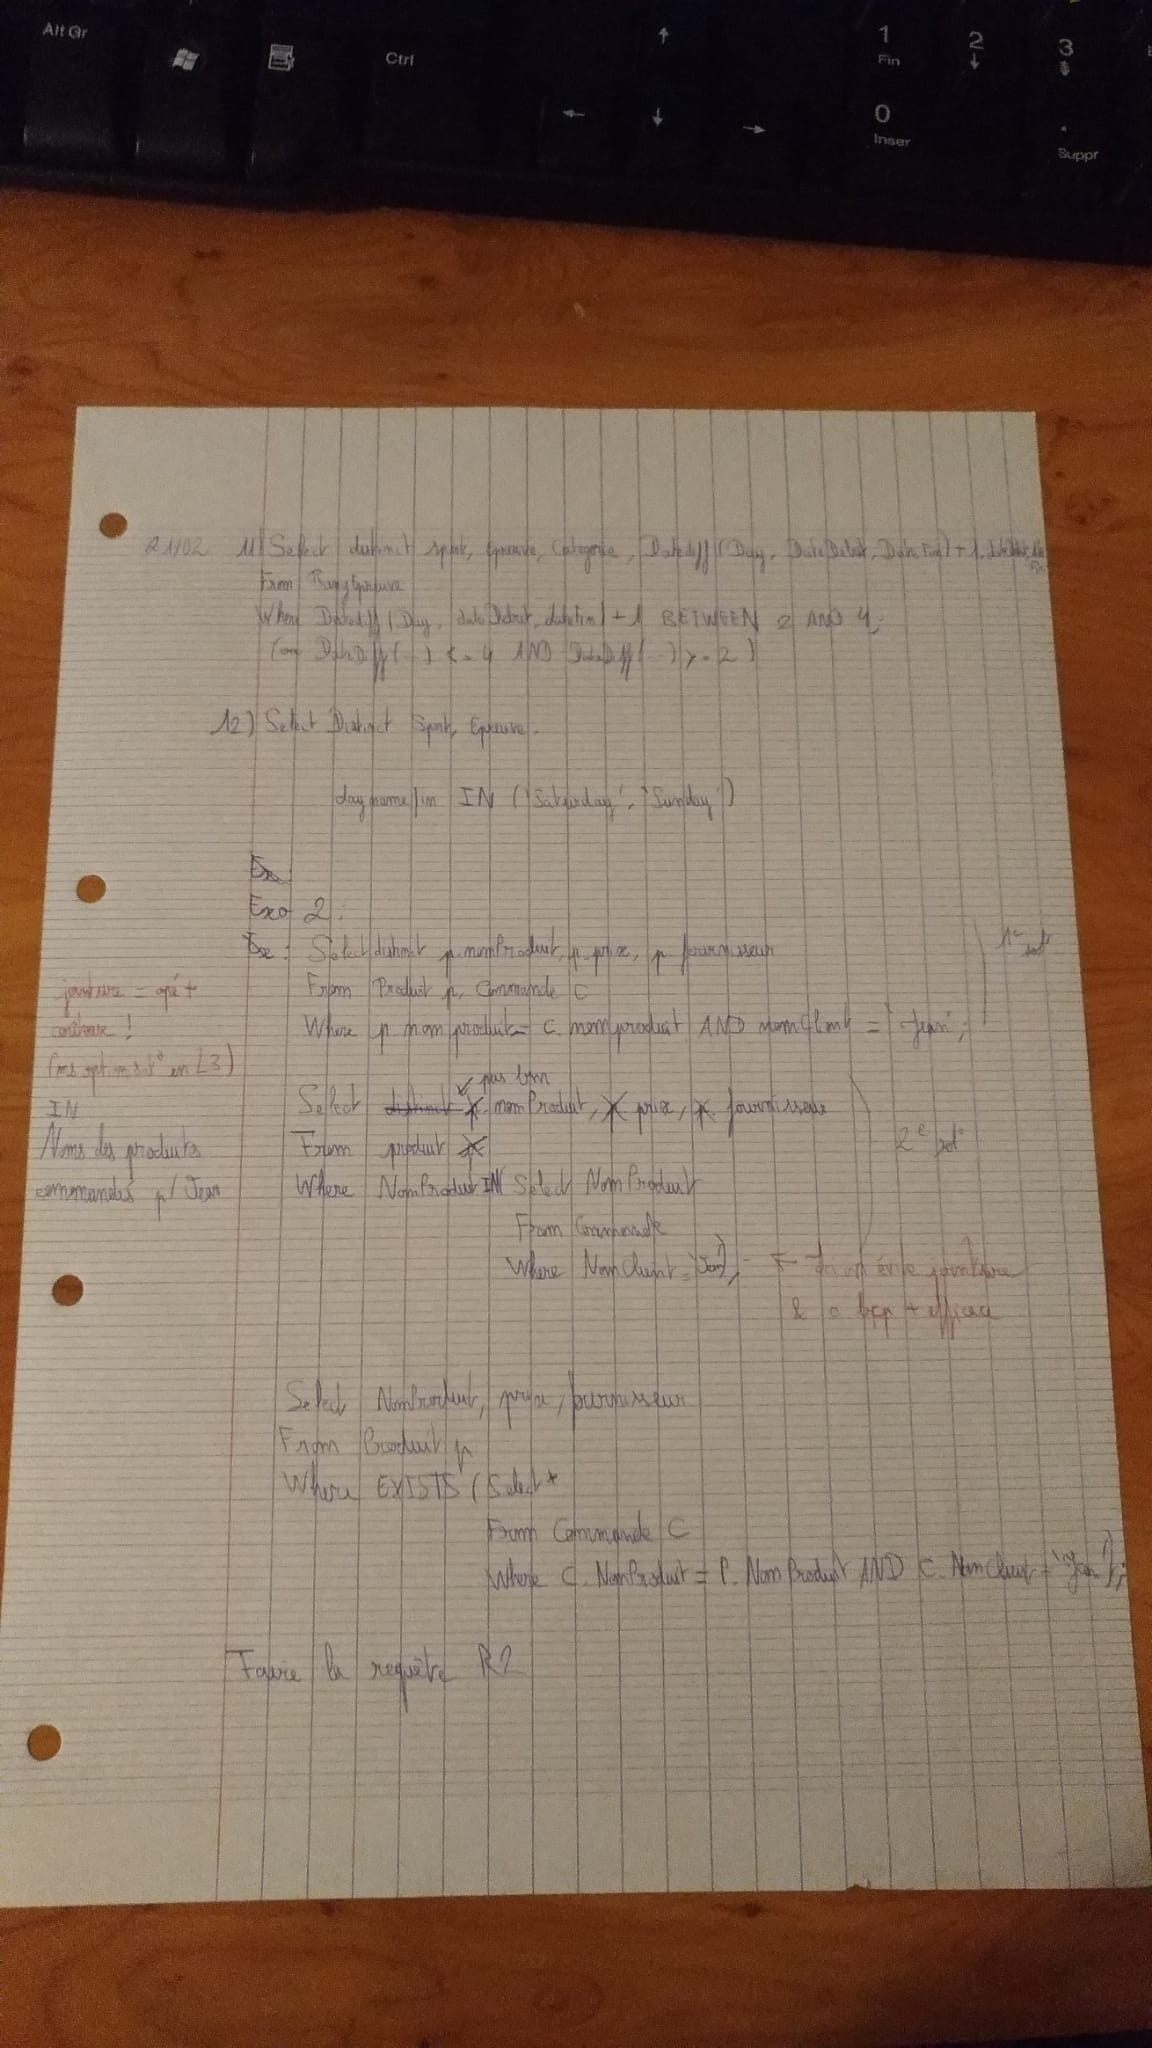 Alt Gr
Ctrl
1
Fin
2
3
0
Inser
.
Suppr
21/02 11) Select distinct sport, Epreuve, Categorie, Datediff (Day, DateDebut, DateFin) + 1,
From
Where Datediff (Day, dateDebut, dateFin) + 1 BETWEEN 2 AND 4;
(ou DateDiff(...) <= 4 AND DateDiff(...) >= 2)
12) Select Distinct Sport, Epreuve.
dayname) in IN ('Saturday', 'Sunday')
Exo 2:
Select distinct p.nomProduit, p.prix, p.fournisseur
1e sol°
jointure = opé +
From Produit p, Commande C
coûteuse !
Where p nom produit = C. nomproduit AND nomClient = 'Jean';
(ms optimisat° en L3)
pas bsn
IN
Select distinct p. nomProduit, p. prix, p. fournisseur
Noms des produits
From produit p
2e sol°
commandés p/ Jean
Where NomProduit IN Select NomProduit
From Commande
Where NomClient = 'Jean');
évite jointure
& c bcp + efficace
Select NomProduit, prix, fournisseur
From Produit p
Where EXISTS (Select *
From Commande C
Where C. NomProduit = P. NomProduit AND C. NomClient = 'Jean');
Faire la requête R2